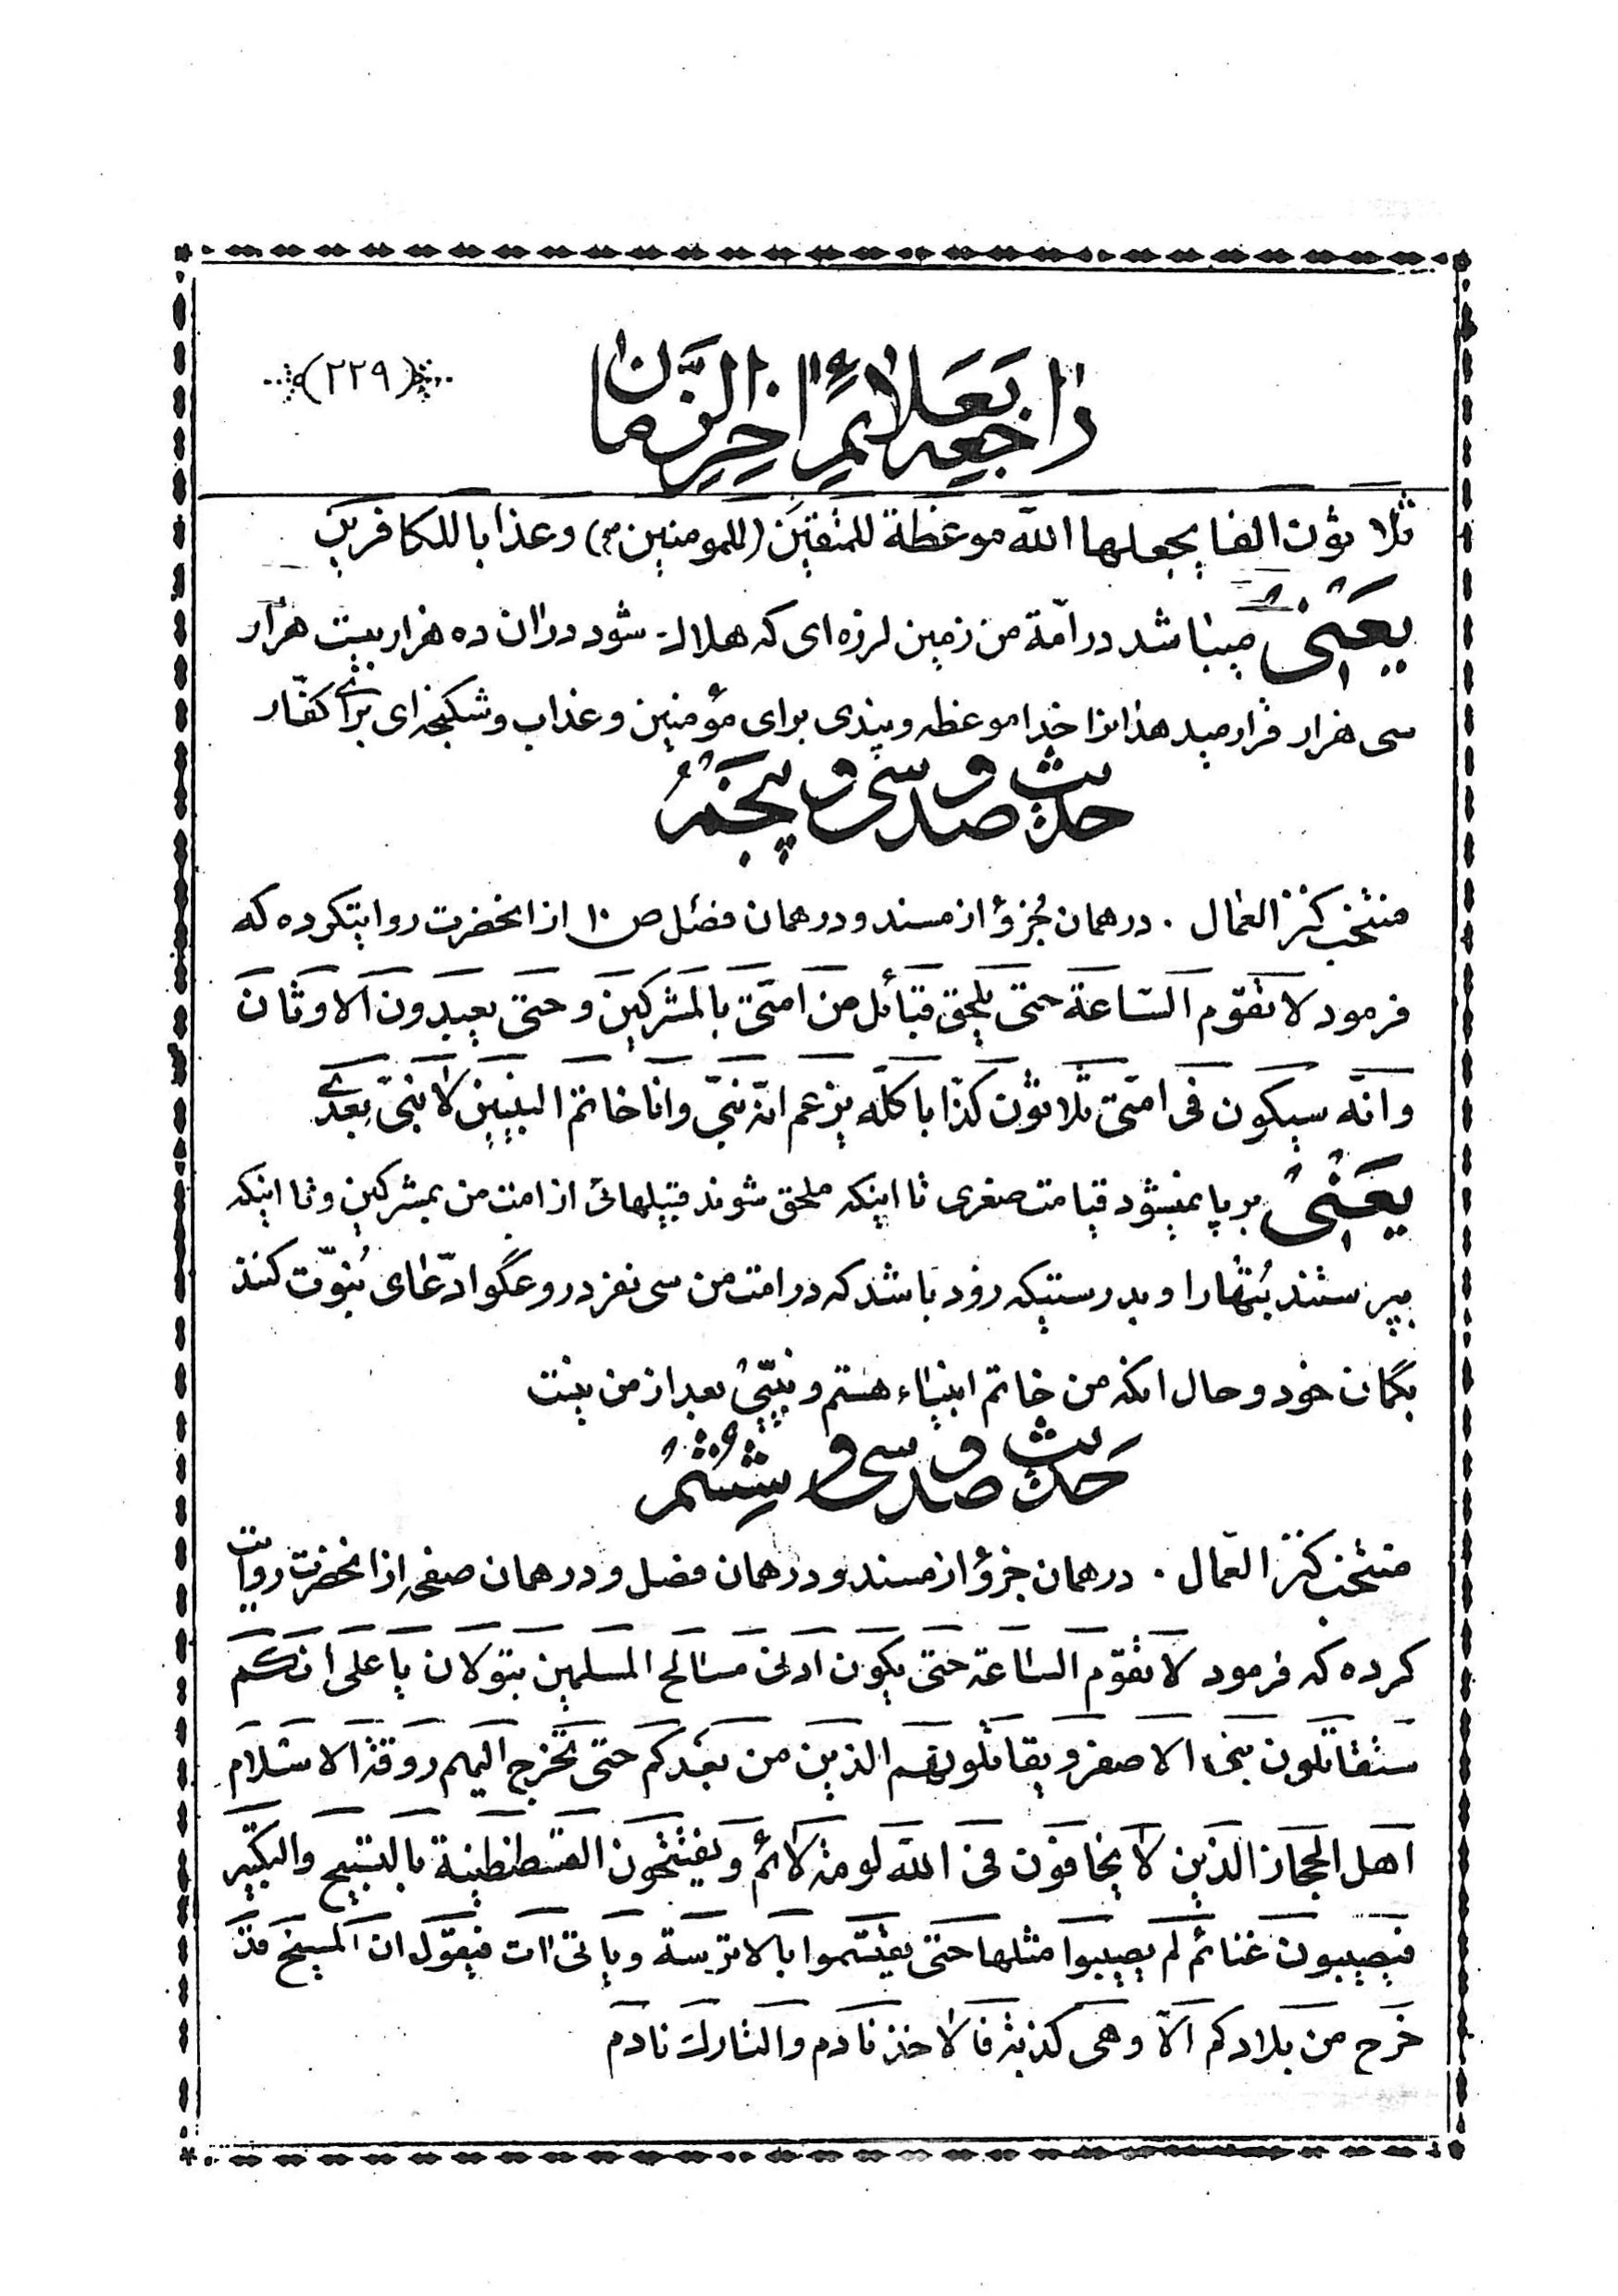 راجعه بعلائم آخر الزمان
(۲۲۹)
ثلاثون الفا يجعلها الله موعظة للمتقين (للمومنين م) وعذابا للكافرين
يعنى ميباشد در امّة من زمين لرزه اى كه هلاك شود در ان ده هزار بيست هزار
سى هزار قرار ميدهد انرا خدا موعظه و پندى براى مؤمنين و عذاب و شكنجه اى براى كفّار
حديث صد و سى و پنجم
منتخب كنز العمال . در همان جزؤ از مسند و در همان فصل ص ۱۰ از انحضرت روايتكرده كه
فرمود لا تقوم السّاعة حتى يلحق قبائل من امتى بالمشركين و حتى يعبدون الاوثان
وانّه سيكون فى امّتى ثلاثون كذابا كلّه يزعم انّه نبىّ وانا خاتم النبيين لا نبىّ بعدى
يعنى بر پا نميشود قيامت صغرى تا اينكه ملحق شوند قبيلهائى از امت من بمشركين و تا اينكه
بپرستند بُتهارا و بدرستيكه زود باشد كه در امت من سى نفر دروغگو ادّعاى نبوّت كنند
بگمان خود و حال انكه من خاتم انبياء هستم و نبيّى بعد از من نيست
حديث صد و سى و ششم
منتخب كنز العمال . در همان جزؤ از مسند و در همان فصل و در همان صفحه از انحضرت روايت
كرده كه فرمود لا تقوم الساعة حتى يكون ادنى مسالح المسلمين بتولان يا على انكم
ستقاتلون بنى الاصفر و يقاتلونهم الذين من بعدكم حتى تخرج اليهم روقة الاسلام
اهل الحجاز الذين لا يخافون فى الله لومة لائم و يفتتحون القسطنطينية بالتسبيح والتكبير
فيصيبون غنائم لم يصيبوا مثلها حتى يقتسموا بالاترسة و ياتى ات فيقول ان المسيح قد
خرج من بلادكم الا وهى كذبة فالاخذ نادم والتارك نادم